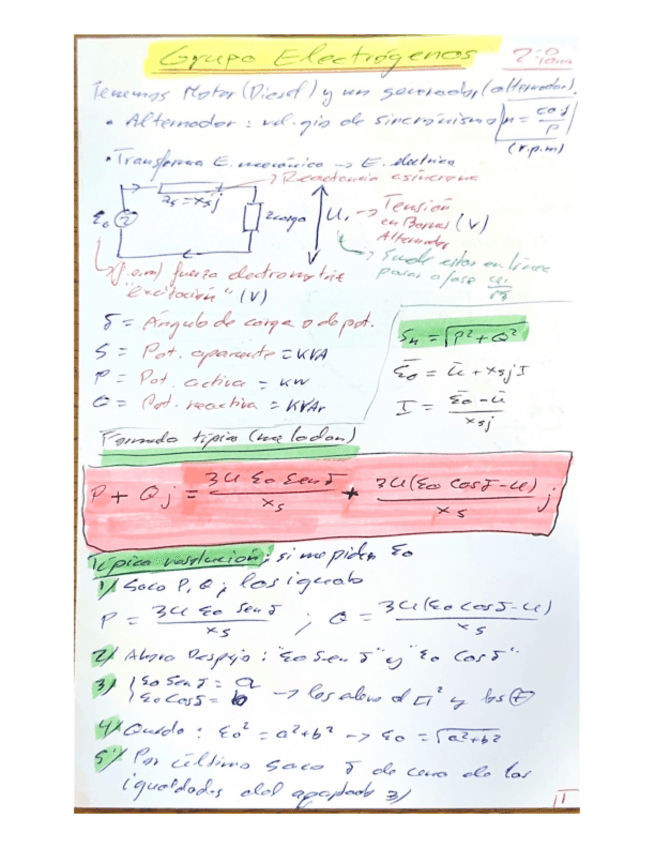 Grupo Electrógenos
Tenemos Motor (Diesel) y un generador (alternador).
• Alternador: vel. giro de sincronismo n = 60·f / P
(r.p.m)
• Transforma E. mecánica -> E. electrica
Reactancia asincrona
Zs = Xsj
εo
Zcarga
U, -> Tensión en Bornas (V) Alternador
Suele estar en linea
pasar a fase /√3
(f.e.m) fuerza electromotriz
"excitación" (V)
δ = Ángulo de carga o de pot.
S = Pot. aparente = KVA
P = Pot. activa = KW
Q = Pot. reactiva = KVAr
Sn = √P² + Q²
εo = U + Xsj I
I = εo - U / Xsj
Formula tipica (me la dan)
P + Qj = 3U εo Sen δ / Xs + 3U(εo Cos δ - U) / Xs j
Típica resolución: si me piden εo
1/ Saco P, Q y los igualo
P = 3U εo Sen δ / Xs ; Q = 3U(εo Cos δ - U) / Xs
2/ Ahora Despejo: "εo Sen δ" y "εo Cos δ"
3/ { εo Sen δ = a
εo Cos δ = b -> los elevo al □² y los (+)
4/ Queda: εo² = a² + b² -> εo = √a² + b²
5/ Por último saco δ de una de las
igualdades del apartado 3)